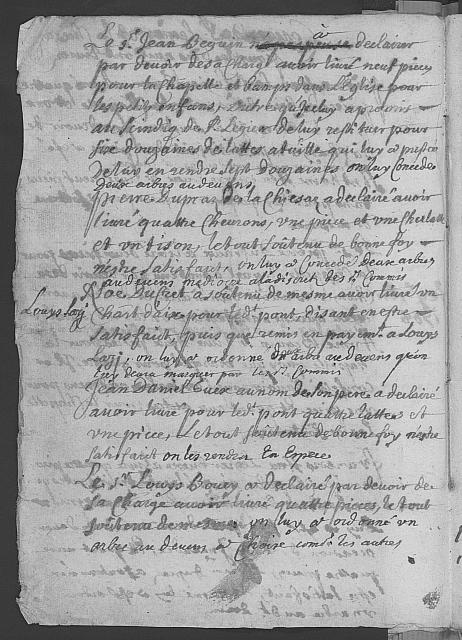 à
Le Sr. Jean Beguin declairer
par devoir de sa charge avoir livré neuf pieces
pour la Chapelle et bancs dans L'Eglise pour
les petits enfans, outre qu'iceluy a promis
au Sindiq de St. Legier de luy restituer pour
six dougaines de lattes qui luy a preste
de luy en rendre sept dougaines on luy Concede
deux arbres au devens
Pierre Dupraz de la Chiesaz a declairé avoir
livré quattre Chevrons, vne piece et vne
et vn tison, le tout soutenu de bonne foy
n'estre satisfait, on luy a Concede deux arbres
au devens mediocre a la disout des Srs. Commis
Noé Ducret a soutenu de mesme avoir livré vn
pour ledt. pont, disant en estre
Louys
satisfait, puis que remis en payemt. a Louys
on luy a ordonné deux arbres au devens qu'on
luy devra marquer par les Srs. Commis
Jean Daniel au nom de son pere a declairé
avoir livré pour ledt. pont quattre lattes et
vne piece, Le tout soutenu de bonne foy n'estre
satisfait on les rendra En Espece
Le Sr. Louys Bovey a declairé par devoir de
sa Charge avoir livré quattre pieces, le tout
soutenu de mesme on luy a ordonné vn
arbre au devens a Choisir come. les autres